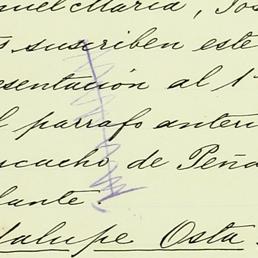 nuel María, Jos
s suscriben este
esentación al 1º
l párrafo anteri
scucho de Peña
lante.
dalupe Osta